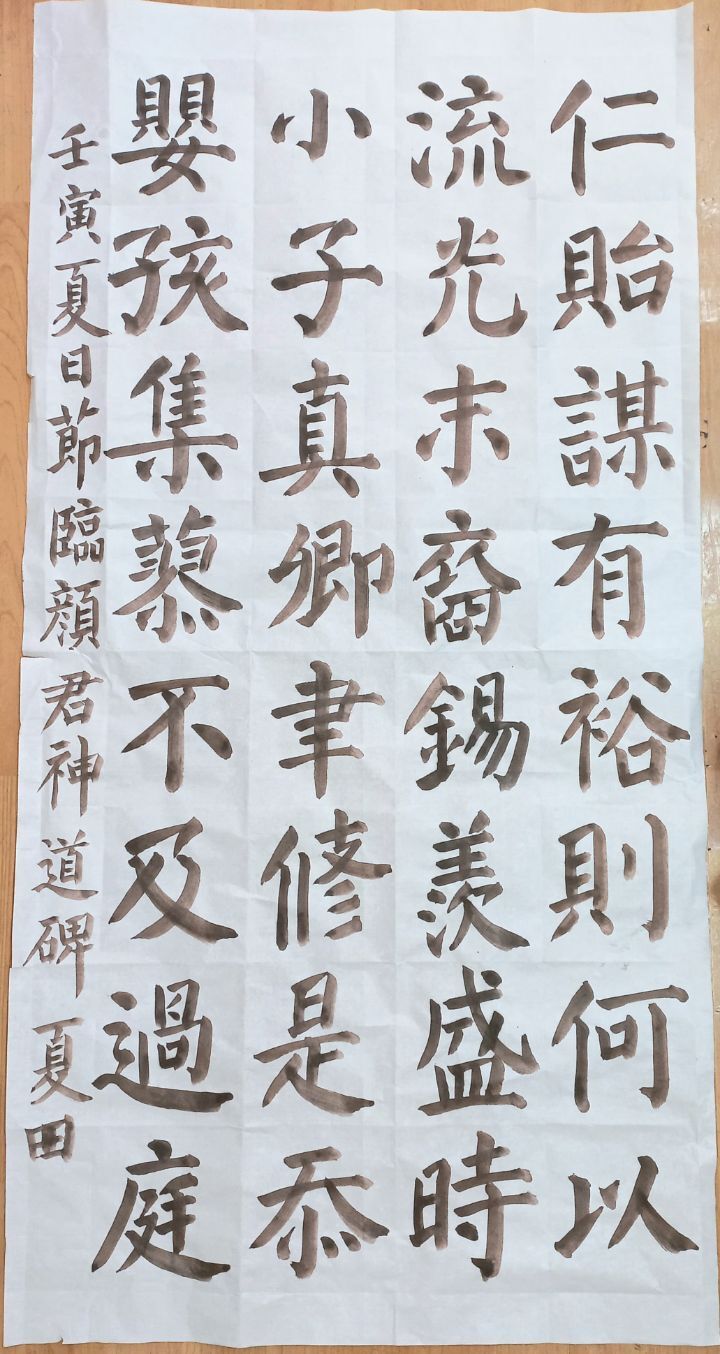 仁貽謀有裕則何以
流光末裔錫羨盛時
小子真卿聿修是忝
嬰孩集蓼不及過庭
壬寅夏日節臨顏君神道碑 夏田